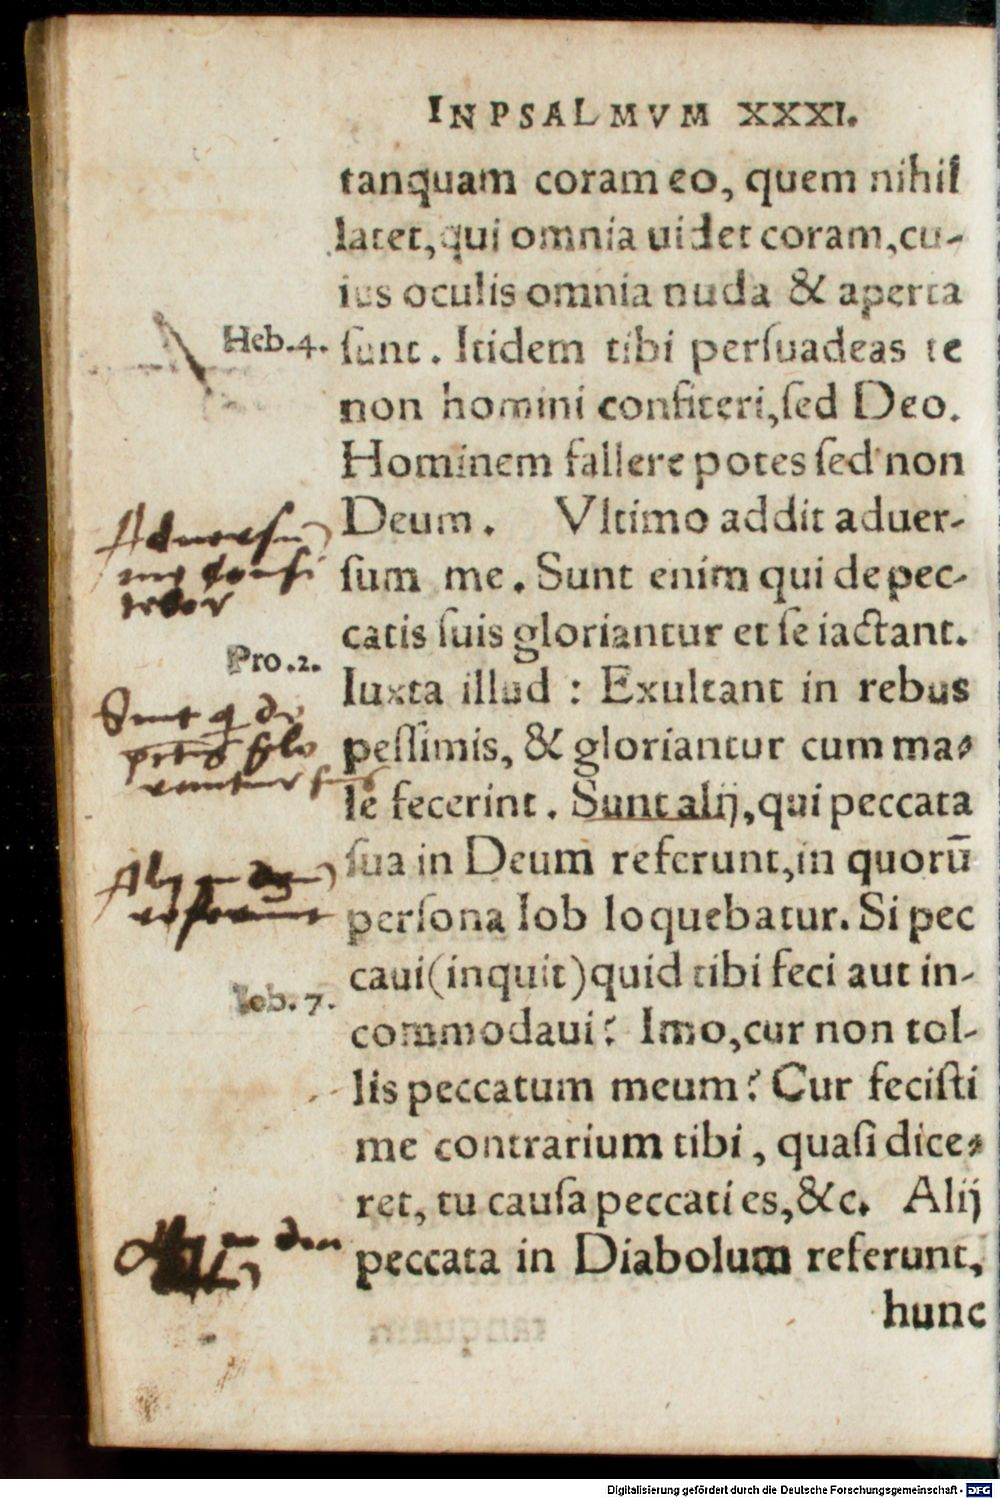 IN PSALMVM XXXI.
tanquam coram eo, quem nihil
latet, qui omnia uidet coram, cu-
ius oculis omnia nuda & aperta
Heb.4.
sunt. Itidem tibi persuadeas te
non homini confiteri, sed Deo.
Hominem fallere potes sed non
Deum. Vltimo addit aduer-
Aduersu
sum me. Sunt enim qui de pec-
me Confi
tebor
catis suis gloriantur et se iactant.
Pro.2.
Iuxta illud : Exultant in rebus
Sunt q de
pessimis, & gloriantur cum ma-
le fecerint. Sunt alij, qui peccata
sua in Deum referunt, in quorū
Alij in deum
referunt
persona Iob loquebatur. Si pec
caui (inquit) quid tibi feci aut in-
Iob.7.
commodaui? Imo, cur non tol-
lis peccatum meum? Cur fecisti
me contrarium tibi, quasi dice-
ret, tu causa peccati es, &c. Alij
peccata in Diabolum referunt,
hunc
Digitalisierung gefördert durch die Deutsche Forschungsgemeinschaft - DFG